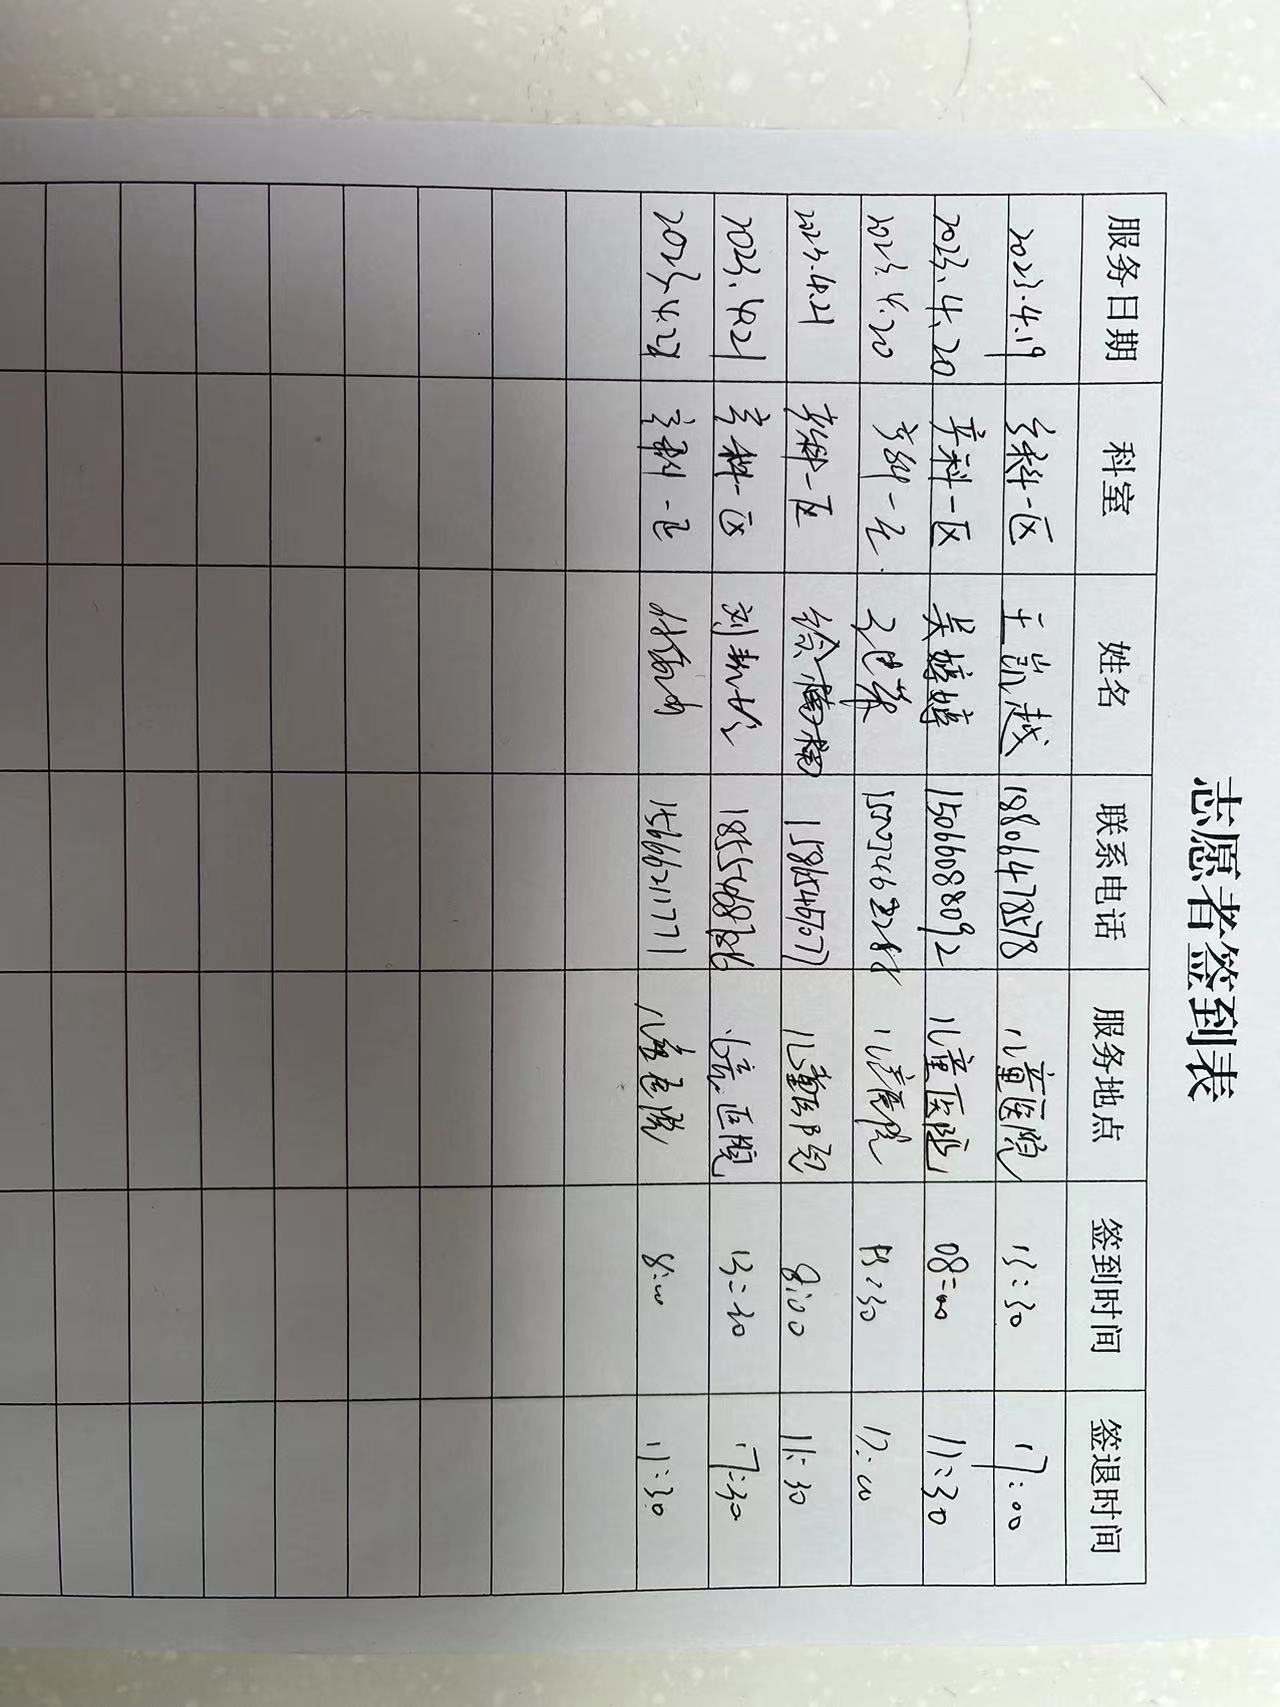 志愿者签到表
服务日期 科室 姓名 联系电话 服务地点 签到时间 签退时间
2023.4.19 产科一区 王凯越 18806478578 儿童医院 13:30 17:00
2023.4.20 产科一区 吴婷婷 15066088092 儿童医院 08:00 11:30
2023.4.20 产科一区 儿童医院 13:30 17:00
2023.4.21 产科一区 徐楠楠 儿童医院 8:00 11:30
2023.4.21 产科一区 刘 儿童医院 13:30 17:30
产科一区 15666211771 儿童医院 8:00 11:30